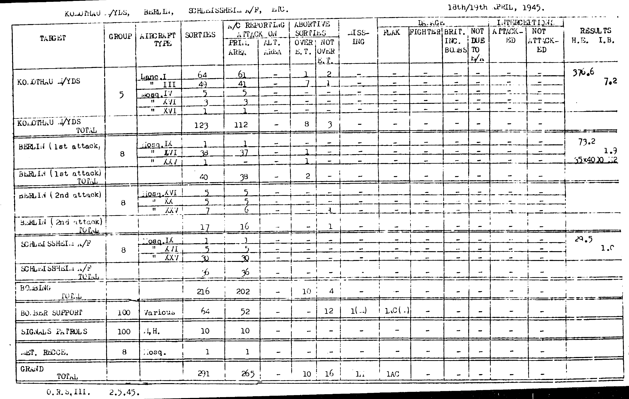 M/YDS, BERLIN, SCHLEISSHEIM A/F, ETC. 18th/19th APRIL, 1945.
TARGET GROUP AIRCRAFT TYPE SORTIES A/C REPORTING ATTACK ON PRIM. AREA ALT. AREA ABORTIVE SORTIES OVER E.T. NOT OVER E.T. MISSING FLAK FIGHTER BRIT. INC. BOMBS NOT DUE TO E/A ATTACKED NOT ATTACKED RESULTS H.E. I.B.
M/YDS 5 Lanc.I 64 61 - 1 2 - - - - - - - 376.6
" III 49 41 - 7 1 - - - - - - - 7.2
Mosq.IV 5 5 - - - - - - - - - -
" XVI 3 3 - - - - - - - - - -
" XVI 1 1 - - - - - - - - - -
M/YDS TOTAL 123 112 - 8 3 - - - - - - -
BERLIN (1st attack) 8 Mosq.IX 1 1 - - - - - - - - - - 73.2
" XVI 38 37 - 1 - - - - - - - - 1.9
" XXV 1 - - 1 - - - - - - - -
BERLIN (1st attack) TOTAL 40 38 - 2 - - - - - - - -
BERLIN (2nd attack) 8 Mosq.XVI 5 5 - - - - - - - - - -
" XX 5 5 - - - - - - - - - -
" XXV 7 6 - - 1 - - - - - - -
BERLIN (2nd attack) TOTAL 17 16 - - 1 - - - - - - -
SCHLEISSHEIM A/F 8 Mosq.IX 1 1 - - - - - - - - - - 29.5
" XVI 5 5 - - - - - - - - - -
" XXV 30 30 - - - - - - - - - -
SCHLEISSHEIM A/F TOTAL 36 36 - - - - - - - - - -
BOMBING TOTAL 216 202 - 10 4 - - - - - - -
BOMBER SUPPORT 100 Various 64 52 - - 12 - - - - -
SIGNALS PATROLS 100 10 10 - - - - - - - - - -
MET. RECCE. 8 Mosq. 1 1 - - - - - - - - - -
GRAND TOTAL 291 265 - 10 16 1AC - - - - -
O.R.S,III. 2.5.45.